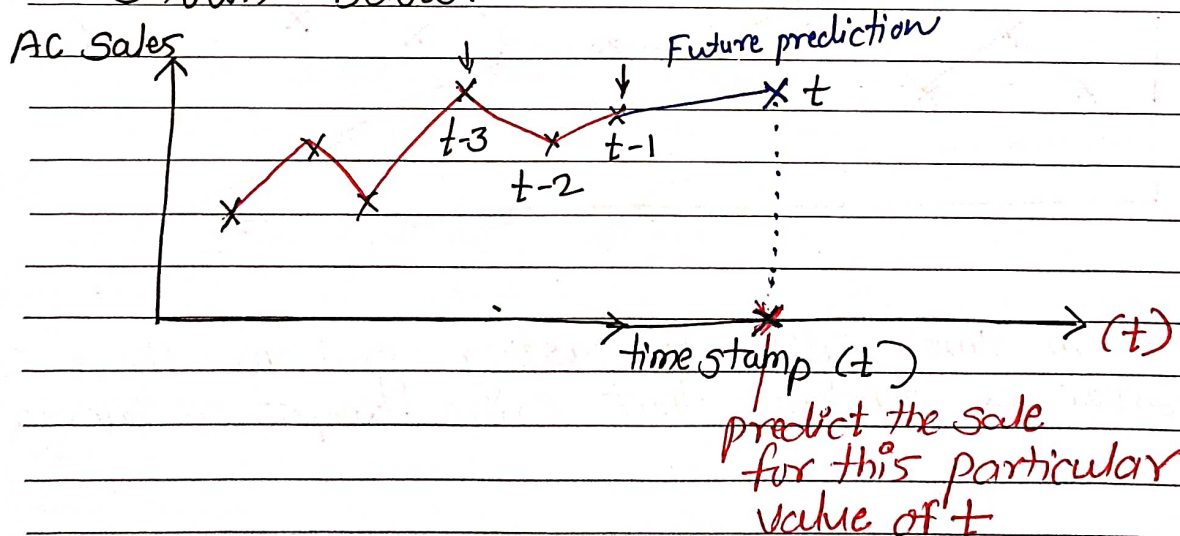 AC Sales
Future prediction
t
t-3
t-1
t-2
(t)
time stamp (t)
predict the sale
for this particular
value of t